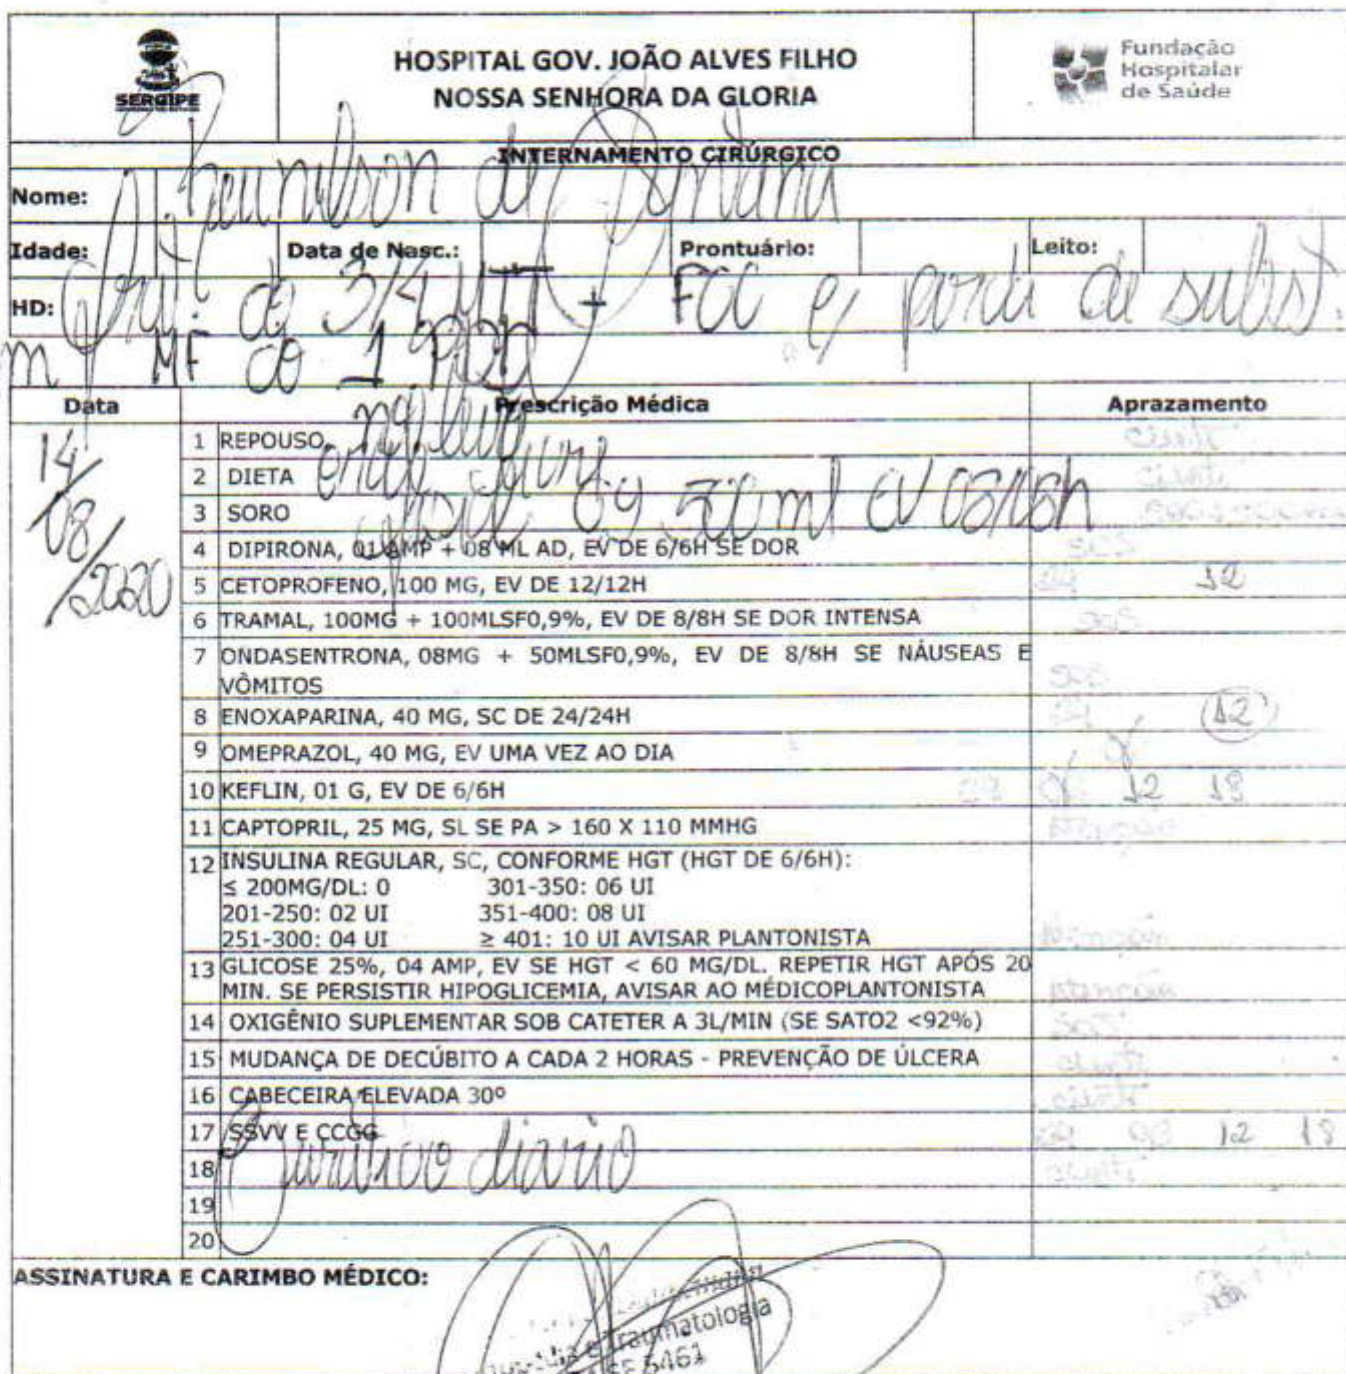 SERGIPE
HOSPITAL GOV. JOÃO ALVES FILHO
NOSSA SENHORA DA GLORIA
Fundação
Hospitalar
de Saúde
INTERNAMENTO CIRÚRGICO
Nome: de Santana
Idade: Data de Nasc.: Prontuário: Leito:
HD: do 3/4 MTT + FCC e perda de subst.
MF do 1 PDD
Data Prescrição Médica Aprazamento
14/08/2020
1 REPOUSO
2 DIETA oral livre
3 SORO 500 ml EV
4 DIPIRONA, 01 AMP + 08 ML AD, EV DE 6/6H SE DOR
5 CETOPROFENO, 100 MG, EV DE 12/12H 12
6 TRAMAL, 100MG + 100MLSF0,9%, EV DE 8/8H SE DOR INTENSA
7 ONDASENTRONA, 08MG + 50MLSF0,9%, EV DE 8/8H SE NÁUSEAS E
VÔMITOS
8 ENOXAPARINA, 40 MG, SC DE 24/24H 12
9 OMEPRAZOL, 40 MG, EV UMA VEZ AO DIA
10 KEFLIN, 01 G, EV DE 6/6H 12 18
11 CAPTOPRIL, 25 MG, SL SE PA > 160 X 110 MMHG
12 INSULINA REGULAR, SC, CONFORME HGT (HGT DE 6/6H):
≤ 200MG/DL: 0 301-350: 06 UI
201-250: 02 UI 351-400: 08 UI
251-300: 04 UI ≥ 401: 10 UI AVISAR PLANTONISTA
13 GLICOSE 25%, 04 AMP, EV SE HGT < 60 MG/DL. REPETIR HGT APÓS 20
MIN. SE PERSISTIR HIPOGLICEMIA, AVISAR AO MÉDICOPLANTONISTA Atenção
14 OXIGÊNIO SUPLEMENTAR SOB CATETER A 3L/MIN (SE SATO2 <92%)
15 MUDANÇA DE DECÚBITO A CADA 2 HORAS - PREVENÇÃO DE ÚLCERA
16 CABECEIRA ELEVADA 30º
17 SSVV E CCGG 12 18
18 Curativo diário
19
20
ASSINATURA E CARIMBO MÉDICO:
Traumatologia
5461